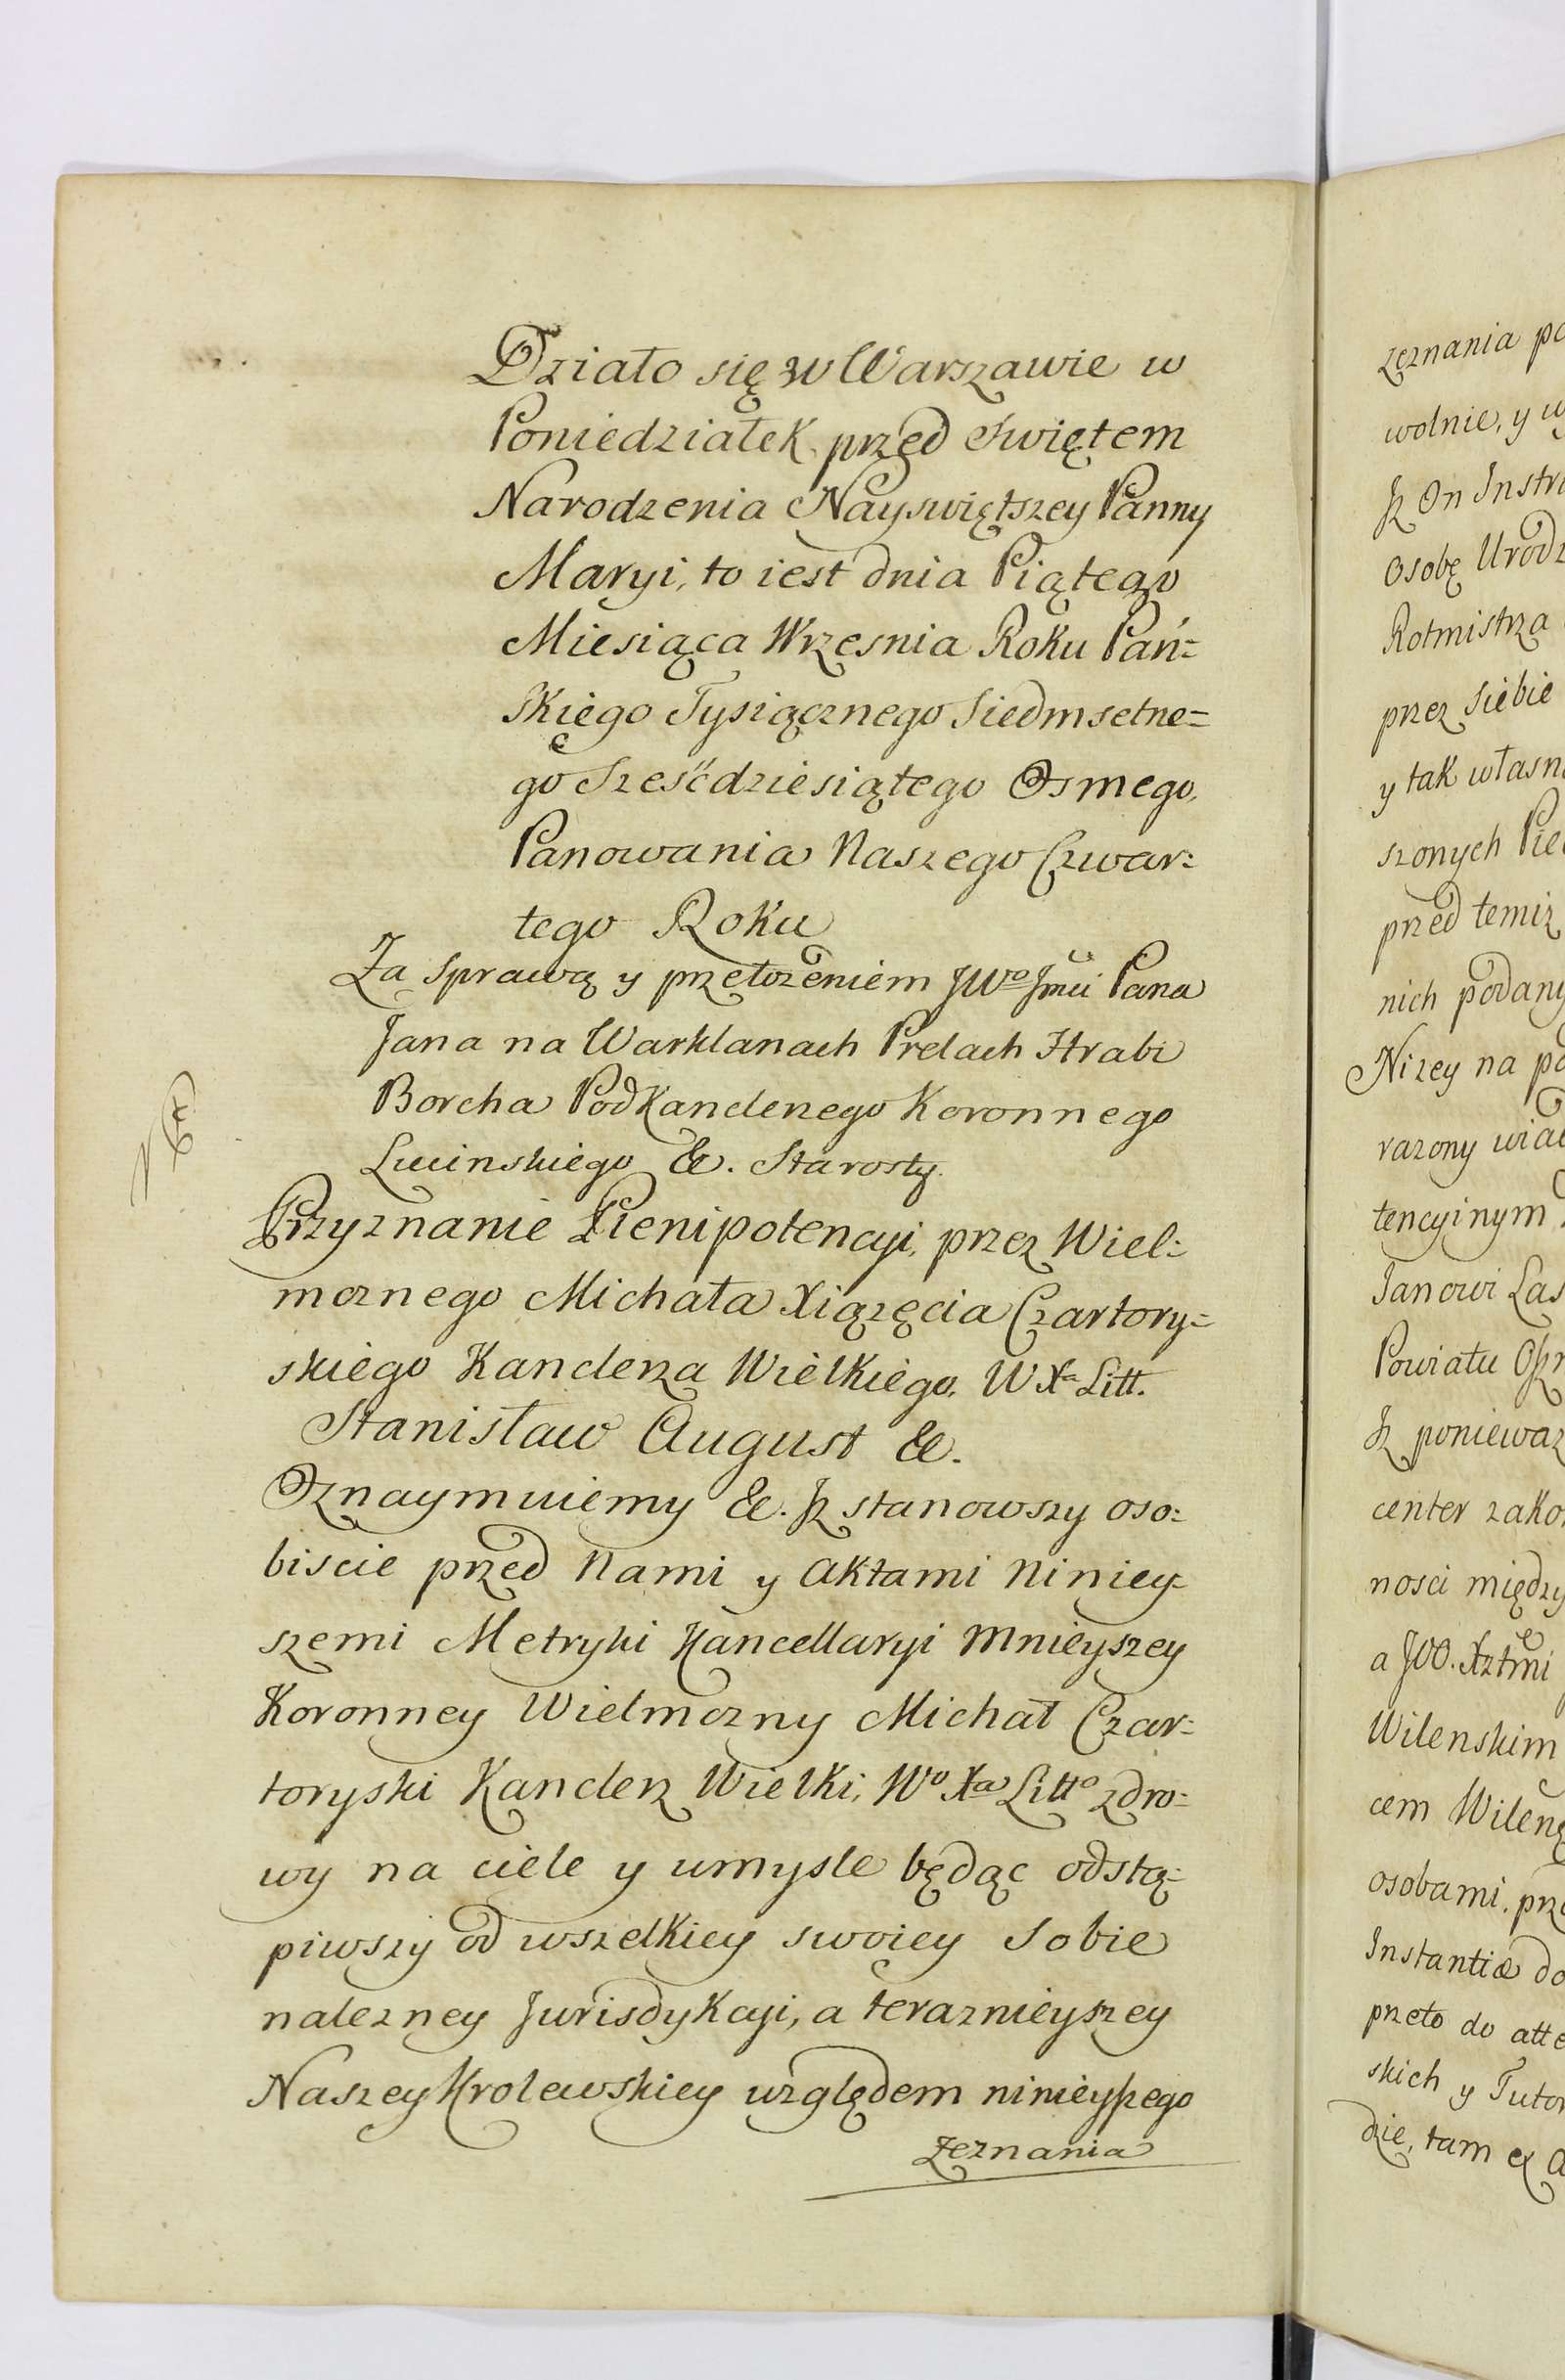 Działo się w Warszawie w
Poniedziałek przed Swiętem
Narodzenia Nayswiętszey Panny
Maryi, to iest dnia Piątego
Miesiąca Wrzesnia Roku Pań=
skiego Tysiącznego Siedmsetne=
go Sześćdziesiątego Osmego,
Panowania Naszego Czwar=
tego Roku
Za sprawą y przełozeniem JWo Jmci Pana
Jana na Warklanach Prelach Hrabi
Borcha Podkanclerzego Koronnego
Lucinskiego &c. Starosty.
Przyznanie Plenipotencyi, przez Wiel=
moznego Michała Xiązęcia Czartory=
skiego Kanclerza Wielkiego, W Xa Litt.
Stanisław August &c.
Oznaymuiemy &c. Jz stanowszy oso=
biscie przed Nami y Aktami Niniey=
szemi Metryki Kancellaryi Mnieyszey
Koronney Wielmozny Michał Czar=
toryski Kanclerz Wielki, Wo Xa Litto zdro=
wy na ciele y umysle będąc odstą=
piwszy od wszelkiey swoiey Sobie
nalezney Jurisdykcyi, a teraznieyszey
Naszey Krolewskiey względem ninieyszego
Zeznania
zeznania
wolnie, y
Jz On
Osobę
Rotmistrza
przez Siebie
y tak
szonych
przed temiz
nich
Nizey na
razony
tencyinym
Janowi
Powiatu
Jz poniewaz
center
nosci między
a JOO.
Wilenskim
cem
osobami,
Instantiæ
przeto do
skich y
dzie, tam